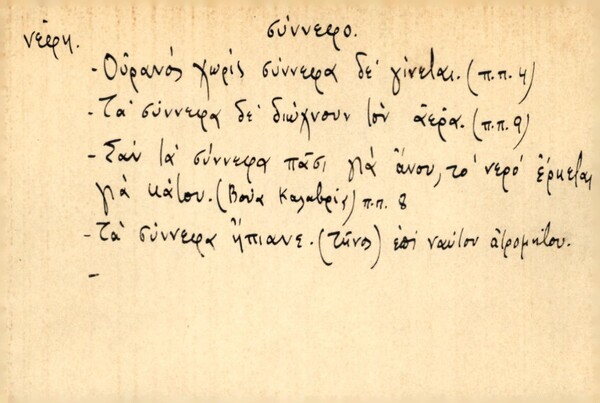 σύννεφο.
νέφη.
- Οὐρανός χωρίς σύννεφα δέ γίνεται. (π.π. 4)
- Τά σύννεφα δέ διώχνουν τόν ἀέρα. (π.π. 9)
- Σάν τά σύννεφα πᾶσι γιά ἄνου, τό νερό ἔρκεται
γιά κάτου. (Βούα Καλαβρίς) π.π. 8
- Τά σύννεφα ἤπιανε. (Τῆνος) ἐπί ναύτου ἀτρομήτου.
-